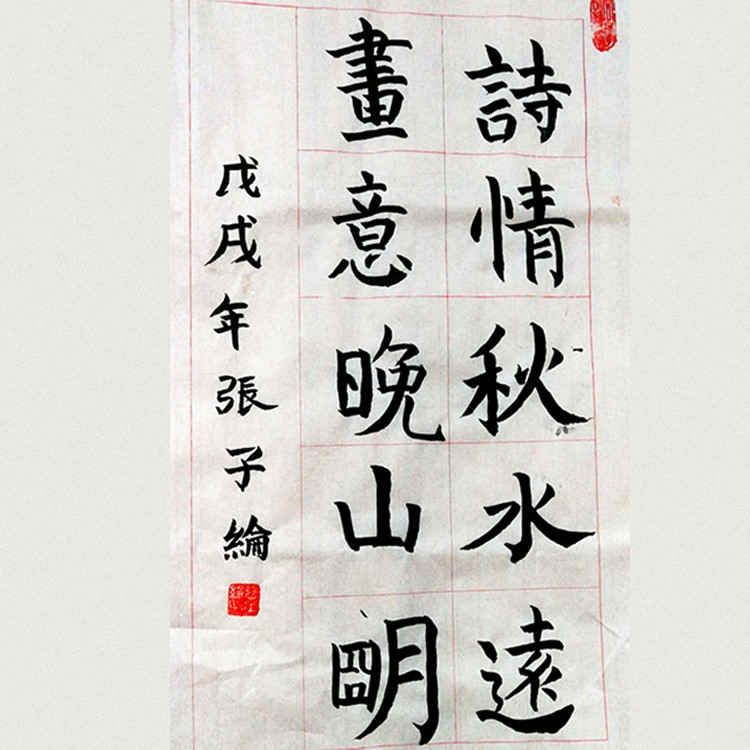 詩情秋水遠
畫意晚山明
戊戌年張子綸